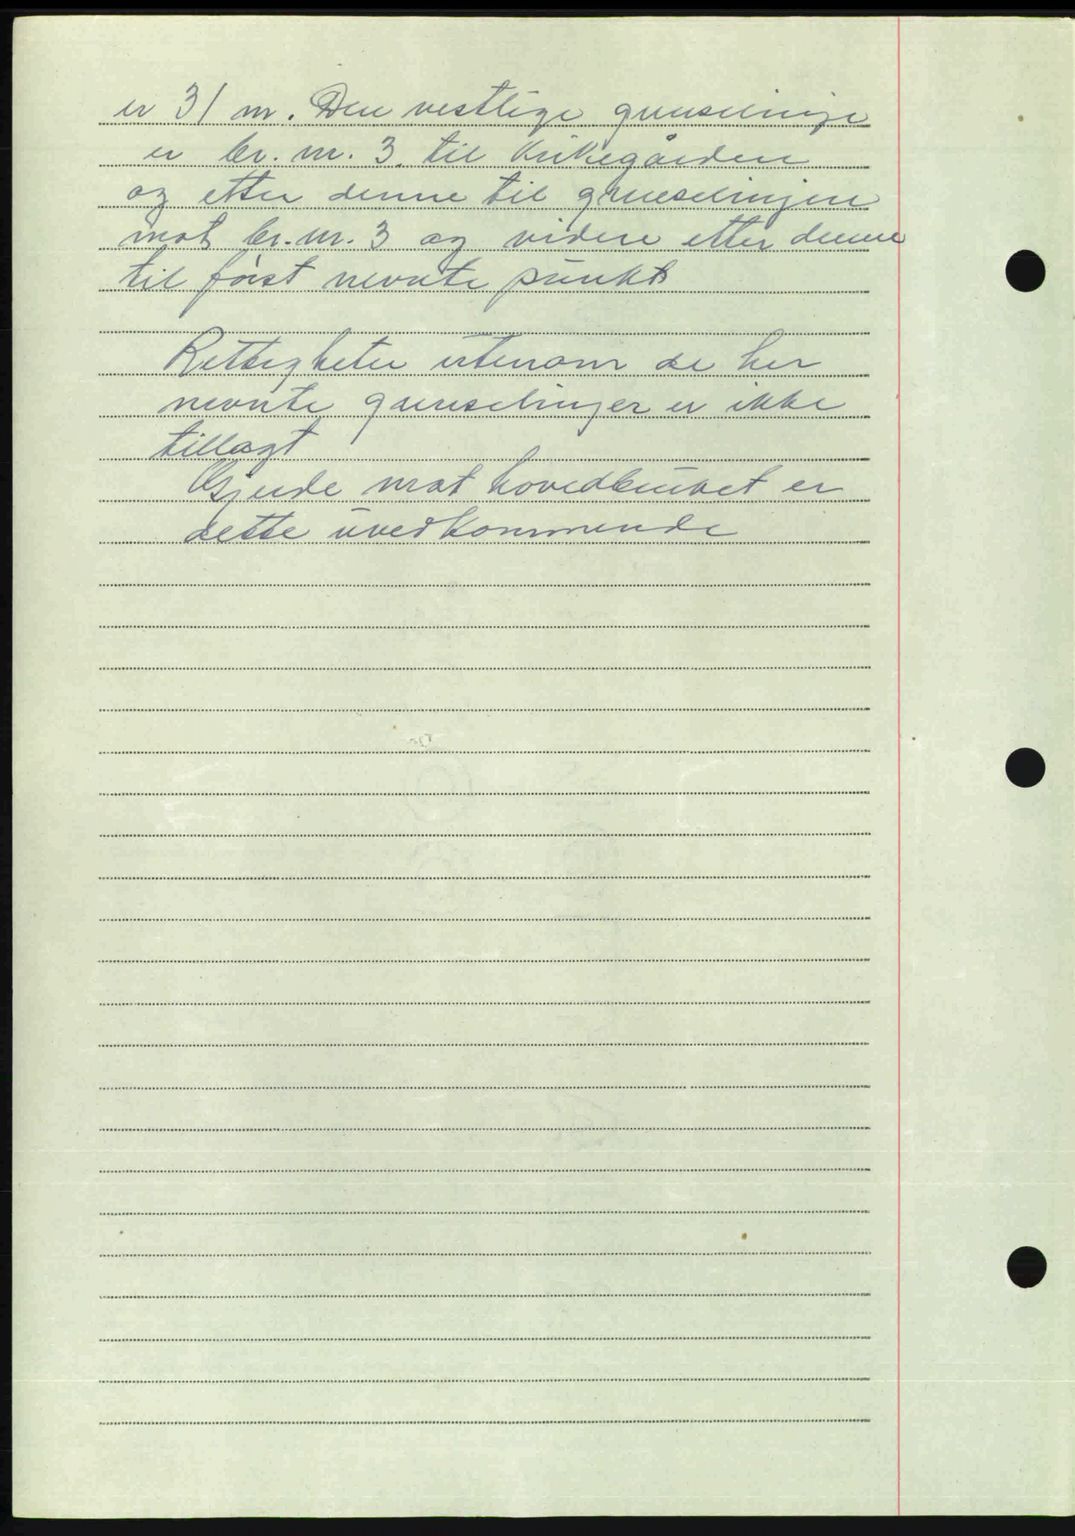 er 31 m. Den vestlige grenselinje
er br. nr. 3. til Kirkegården
og etter denne til grenselinjen
mot br. nr. 3 og videre etter denne
til først nevnte punkt
Rettigheter utenom de her
nevnte grenselinjer er ikke
tillagt
Gjerde mot hovedbruket er
dette uvedkommende